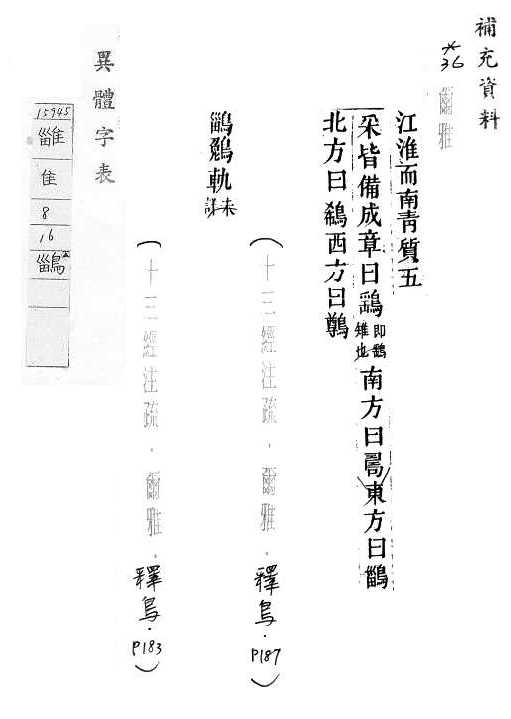 補充資料
*36
爾雅
江淮而南青質五
采皆備成章曰鷂即鷂雉也南方曰𠷎東方曰鶅
北方曰鵗西方曰鷷
(十三經注疏.爾雅.釋鳥.P187)
鶅鶨軌未詳
(十三經注疏.爾雅.釋鳥.P183)
異體字表
15945
隹
8
16
鶅